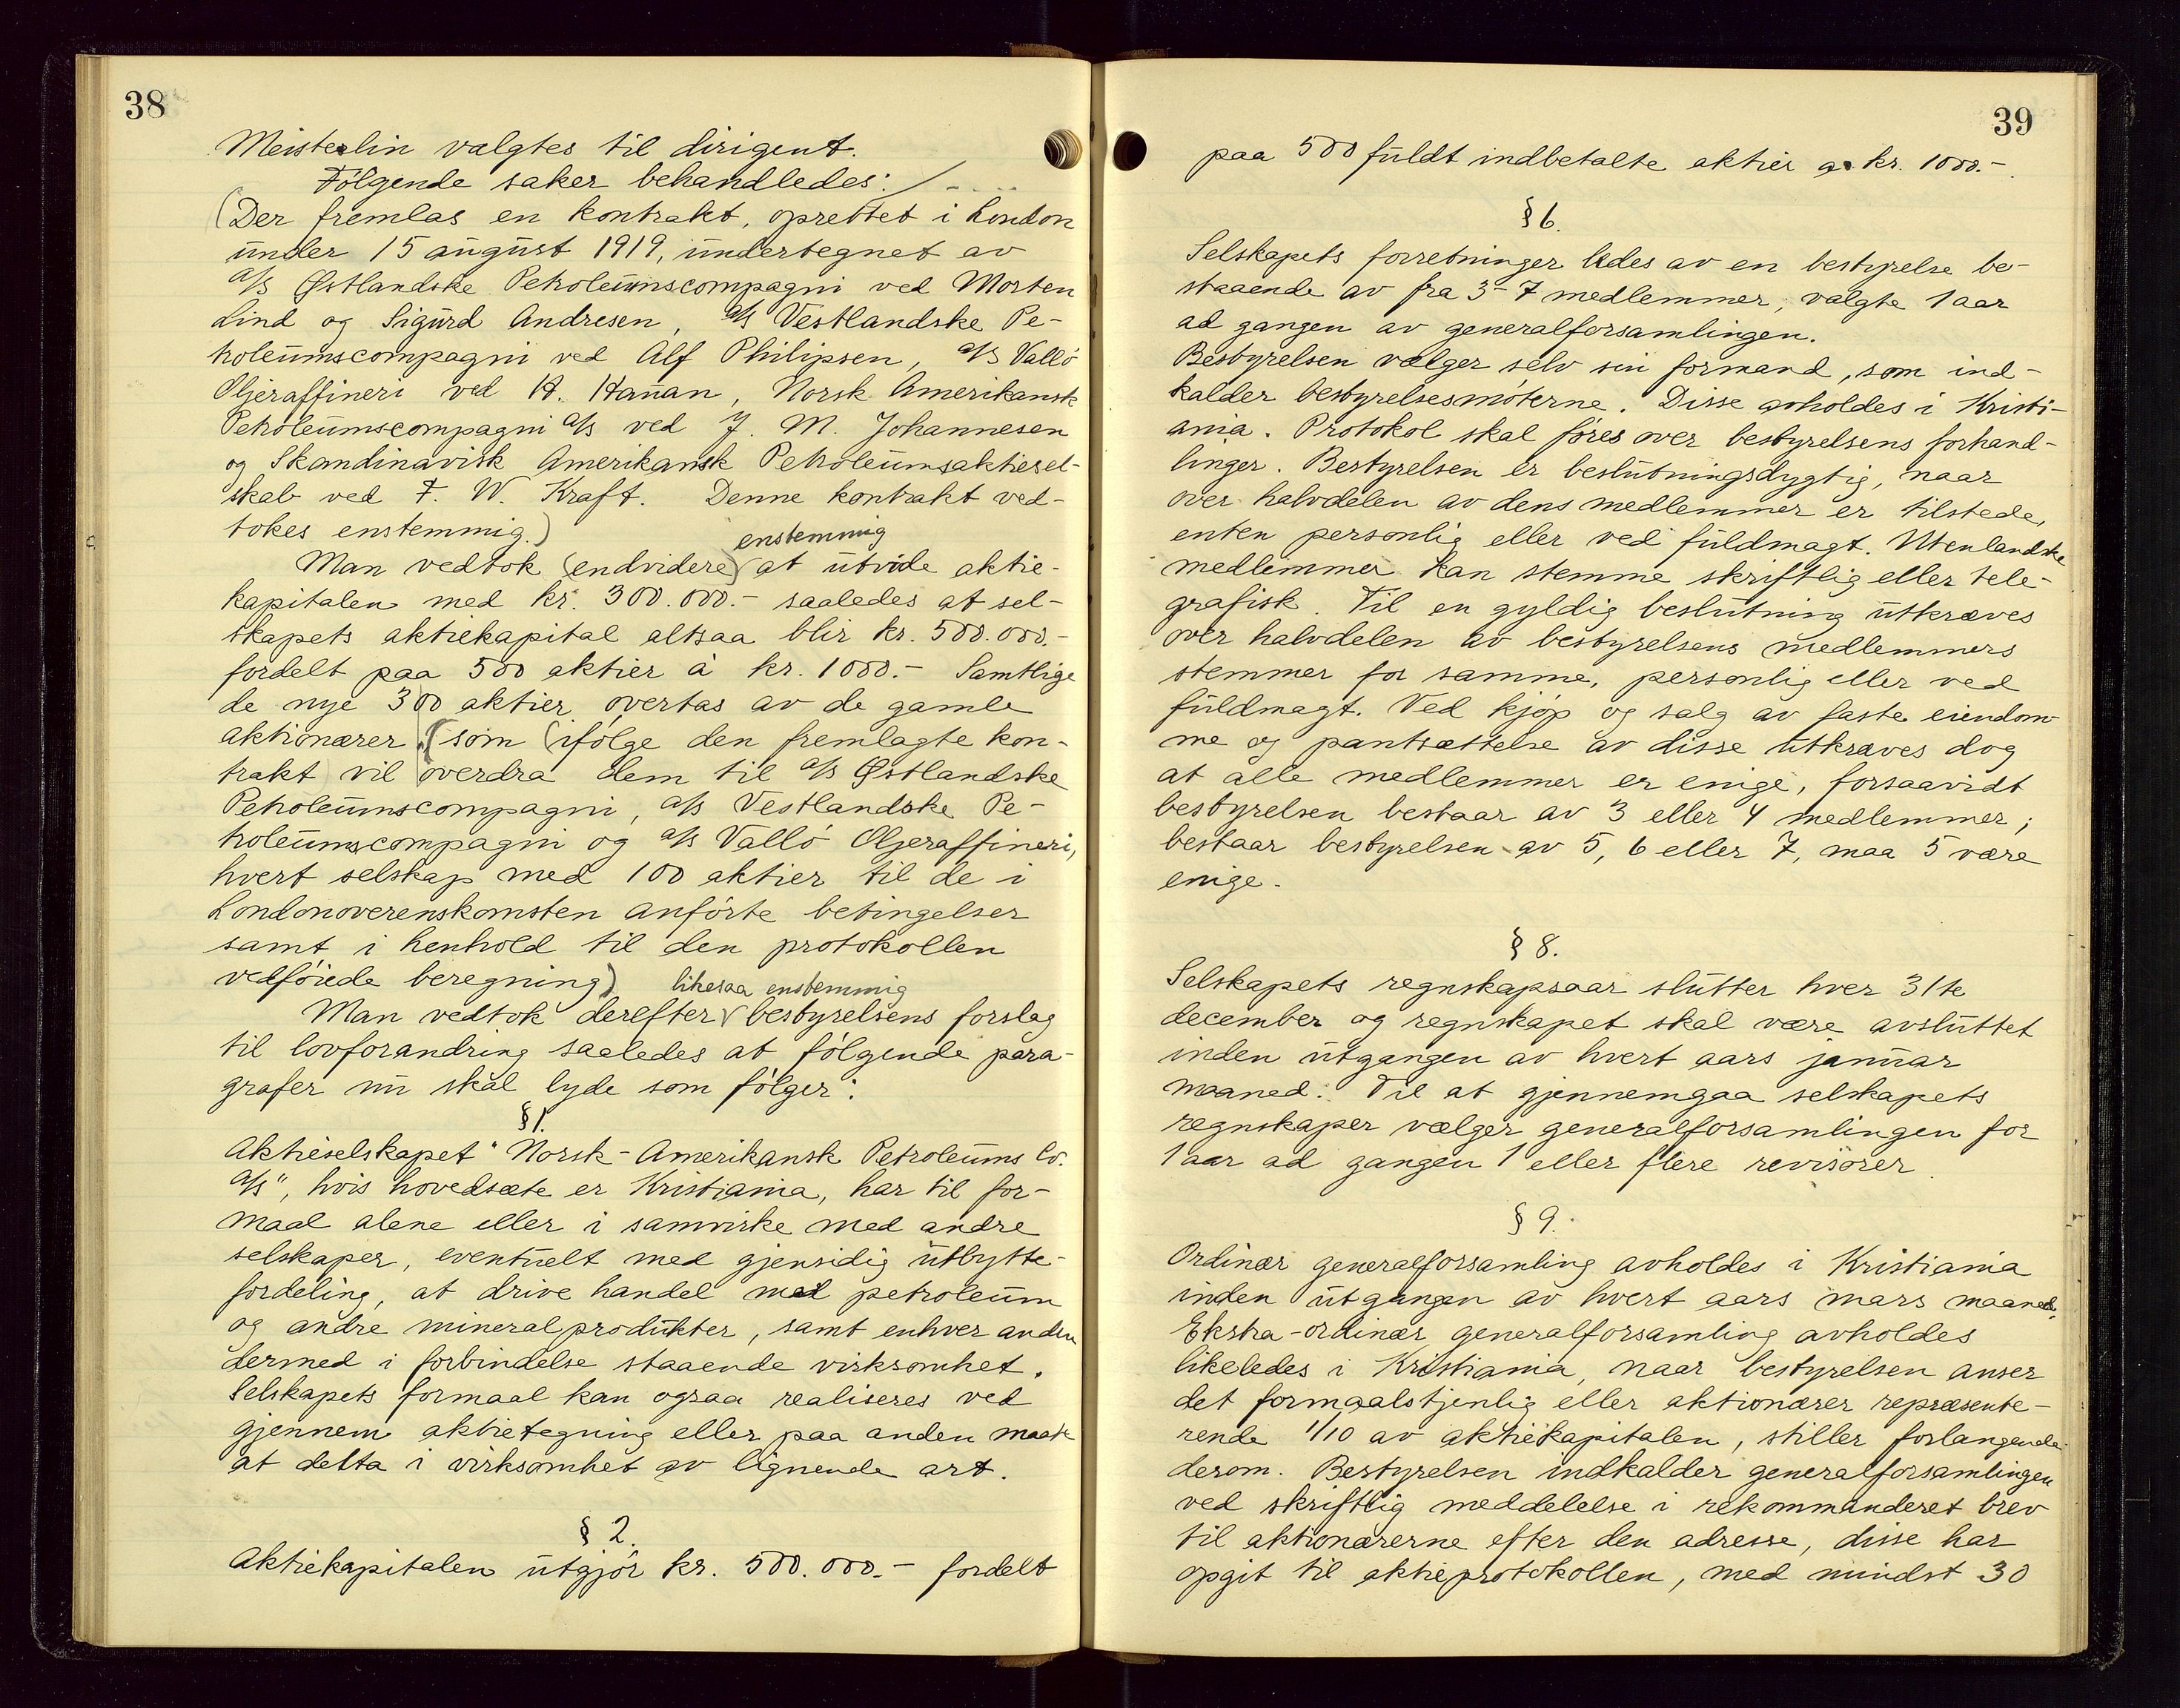 38
Meisterlin valgtes til dirigent.
Følgende saker behandledes:
(Der fremlas en kontrakt, oprettet i London
under 15 august 1919, undertegnet av
A/S Østlandske Petroleumscompagni ved Morten
Lind og Sigurd Andresen, A/S Vestlandske Pe-
troleumscompagni ved Alf Philipsen, A/S Vallö
Oljeraffineri ved H. Hannan, Norsk Amerikansk
Petroleumscompagni A/S ved J. M. Johannesen
og Skandinavisk Amerikansk Petroleumsaktiesel-
skab ved F. W. Kraft. Denne kontrakt ved-
tokes enstemmig.)
enstemmig
Man vedtok (endvidere) at utvide aktie-
kapitalen med kr. 300.000.- saaledes at sel-
skapets aktiekapital altsaa blir kr. 500.000.-
fordelt paa 500 aktier à kr. 1000.- Samtlige
de nye 300 aktier overtas av de gamle
aktionærer, (som (ifølge den fremlagte kon-
trakt) vil overdra dem til A/S Østlandske
Petroleumscompagni, A/S Vestlandske Pe-
troleumscompagni og A/S Vallö Oljeraffineri,
hvert selskap med 100 aktier til de i
Londonoverenskomsten anførte betingelser
samt i henhold til den protokollen
vedføiede beregning)
likesaa enstemmig
Man vedtok derefter bestyrelsens forslag
til lovforandring saaledes at følgende para-
grafer nu skal lyde som følger:
§1.
Aktieselskapet "Norsk-Amerikansk Petroleums Co.
A/S", hvis hovedsæte er Kristiania, har til for-
maal alene eller i samvirke med andre
selskaper, eventuelt med gjensidig utbytte-
fordeling, at drive handel med petroleum
og andre mineralprodukter, samt enhver anden
dermed i forbindelse staaende virksomhet.
Selskapets formaal kan ogsaa realiseres ved
gjennem aktietegning eller paa anden maate
at delta i virksomhet av lignende art.
§ 2.
Aktiekapitalen utgjør kr. 500.000.- fordelt
39
paa 500 fuldt indbetalte aktier a kr. 1000.-.
§ 6.
Selskapets forretninger ledes av en bestyrelse be-
staaende av fra 3-7 medlemmer, valgte 1 aar
ad gangen av generalforsamlingen.
Bestyrelsen vælger selv sin formand, som ind-
kalder bestyrelsesmøterne. Disse avholdes i Kristi-
ania. Protokol skal føres over bestyrelsens forhand-
linger. Bestyrelsen er beslutningsdygtig, naar
over halvdelen av dens medlemmer er tilstede,
enten personlig eller ved fuldmagt. Utenlandske
medlemmer kan stemme skriftlig eller tele-
grafisk. Til en gyldig beslutning utkræves
over halvdelen av bestyrelsens medlemmers
stemmer for samme, personlig eller ved
fuldmagt. Ved kjøp og salg av faste eiendom-
me og pantsættelse av disse utkræves dog
at alle medlemmer er enige, forsaavidt
bestyrelsen bestaar av 3 eller 4 medlemmer;
bestaar bestyrelsen av 5, 6 eller 7, maa 5 være
enige.
§ 8.
Selskapets regnskapsaar slutter hver 31te
december og regnskapet skal være avsluttet
inden utgangen av hvert aars januar
maaned. Til at gjennemgaa selskapets
regnskaper vælger generalforsamlingen for
1 aar ad gangen 1 eller flere revisorer.
§ 9.
Ordinær generalforsamling avholdes i Kristiania
inden utgangen av hvert aars mars maaned.
Ekstra-ordinær generalforsamling avholdes
likeledes i Kristiania, naar bestyrelsen anser
det formaalstjenlig eller aktionærer repræsente-
rende 1/10 av aktiekapitalen, stiller forlangende
derom. Bestyrelsen indkalder generalforsamlingen
ved skriftlig meddelelse i rekommanderet brev
til aktionærerne efter den adresse, disse har
opgit til aktieprotokollen, med mindst 30